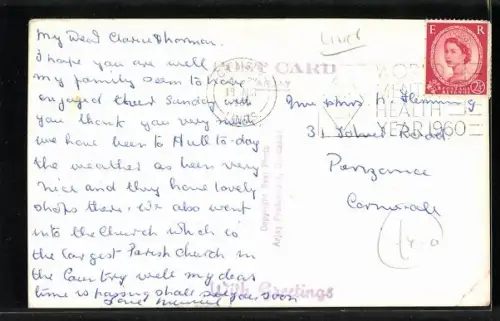 My Dear Clarice & Norman.
I hope you are well
my family seem to have
enjoyed their Sunday with
you thank you very much
we have been to Hull to-day
the weather as been very
nice and they have lovely
shops there. We also went
into the Church which is
the largest Parish Church in
the Country well my dear
time is passing shall see you soon
Love
CARD
E R
WORLD
HEALTH
YEAR 1960
Mr & Mrs N. Fleming
31 Road
Penzance
Cornwall
With Greetings